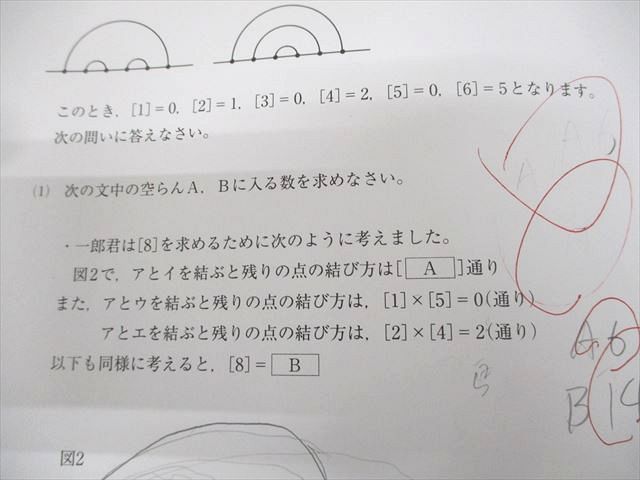 このとき，[1]＝0，[2]＝1，[3]＝0，[4]＝2，[5]＝0，[6]＝5となります。
次の問いに答えなさい。
(1) 次の文中の空らんA，Bに入る数を求めなさい。
・一郎君は[8]を求めるために次のように考えました。
図2で，アとイを結ぶと残りの点の結び方は[ A ]通り
また，アとウを結ぶと残りの点の結び方は，[1]×[5]＝0(通り)
アとエを結ぶと残りの点の結び方は，[2]×[4]＝2(通り)
以下も同様に考えると，[8]＝ B
A 6
B 14
図2